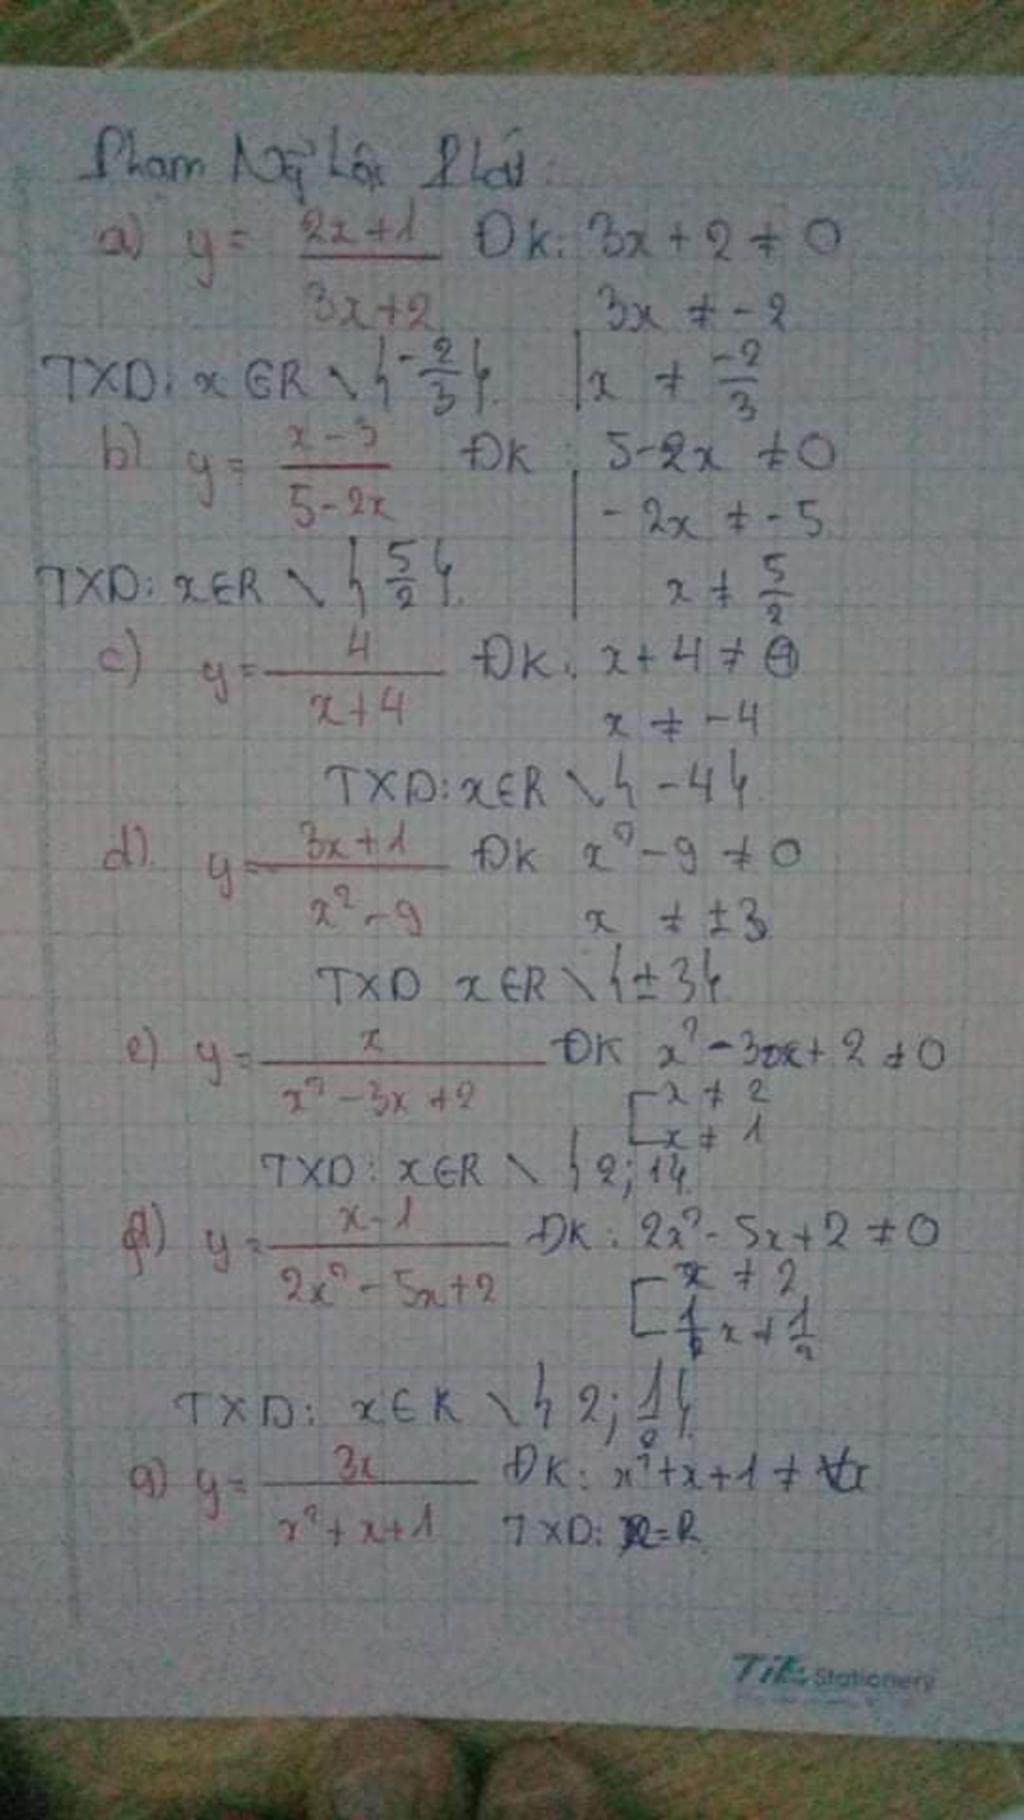 Phạm Ngọc Lộc Phát:
a) y = (2x+1)/(3x+2) ĐK: 3x + 2 ≠ 0
3x ≠ -2
TXD: x ∈ R \ {-2/3}. x ≠ -2/3
b) y = (x-3)/(5-2x) ĐK: 5-2x ≠ 0
-2x ≠ -5
TXD: x ∈ R \ {5/2}. x ≠ 5/2
c) y = 4/(x+4) ĐK: x + 4 ≠ 0
x ≠ -4
TXD: x ∈ R \ {-4}
d) y = (3x+1)/(x²-9) ĐK x² - 9 ≠ 0
x ≠ ±3
TXD x ∈ R \ {±3}
e) y = x/(x²-3x+2) ĐK x² - 3x + 2 ≠ 0
x ≠ 2
x ≠ 1
TXD: x ∈ R \ {2; 1}
f) y = (x-1)/(2x²-5x+2) ĐK: 2x² - 5x + 2 ≠ 0
x ≠ 2
x ≠ 1/2
TXD: x ∈ R \ {2; 1/2}.
g) y = 3x/(x²+x+1) ĐK: x² + x + 1 ≠ ∀x
TXD: D = R
TiTi Stationery